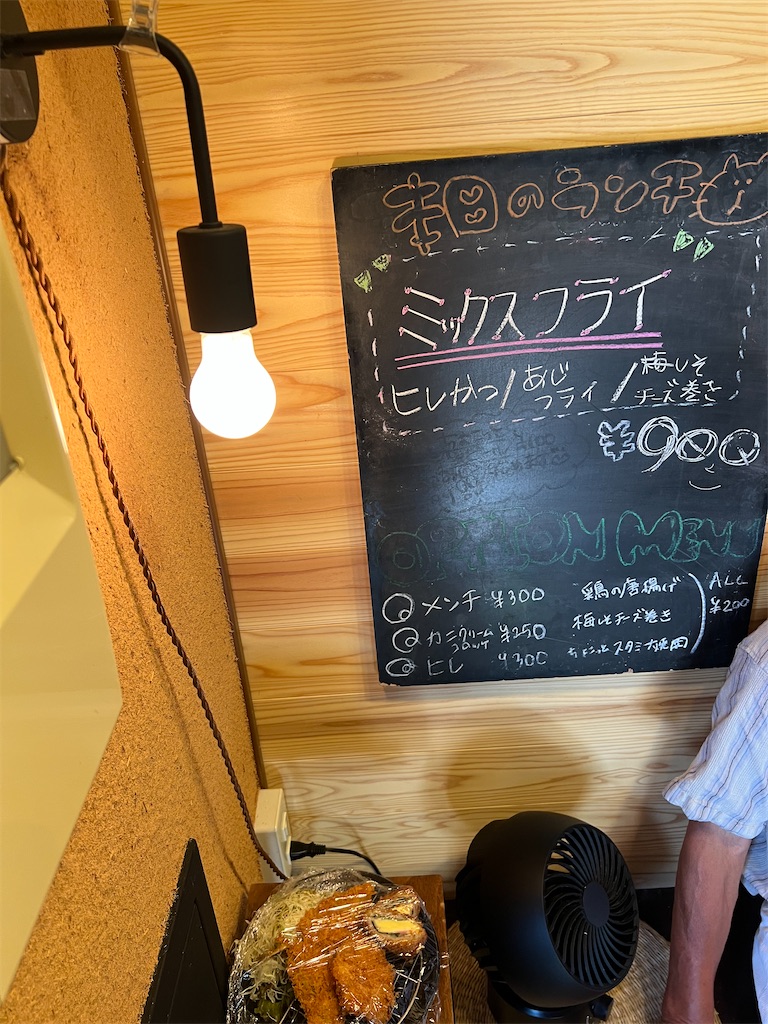 本日のランチ
ミックスフライ
ヒレかつ/あじフライ/梅しそチーズ巻き
¥900
OPTION MENU
メンチ ¥300 鶏の唐揚げ ALL
カニクリームコロッケ ¥250 梅しそチーズ巻き ¥200
ヒレ ¥300 ちょこっとスタミナ焼肉